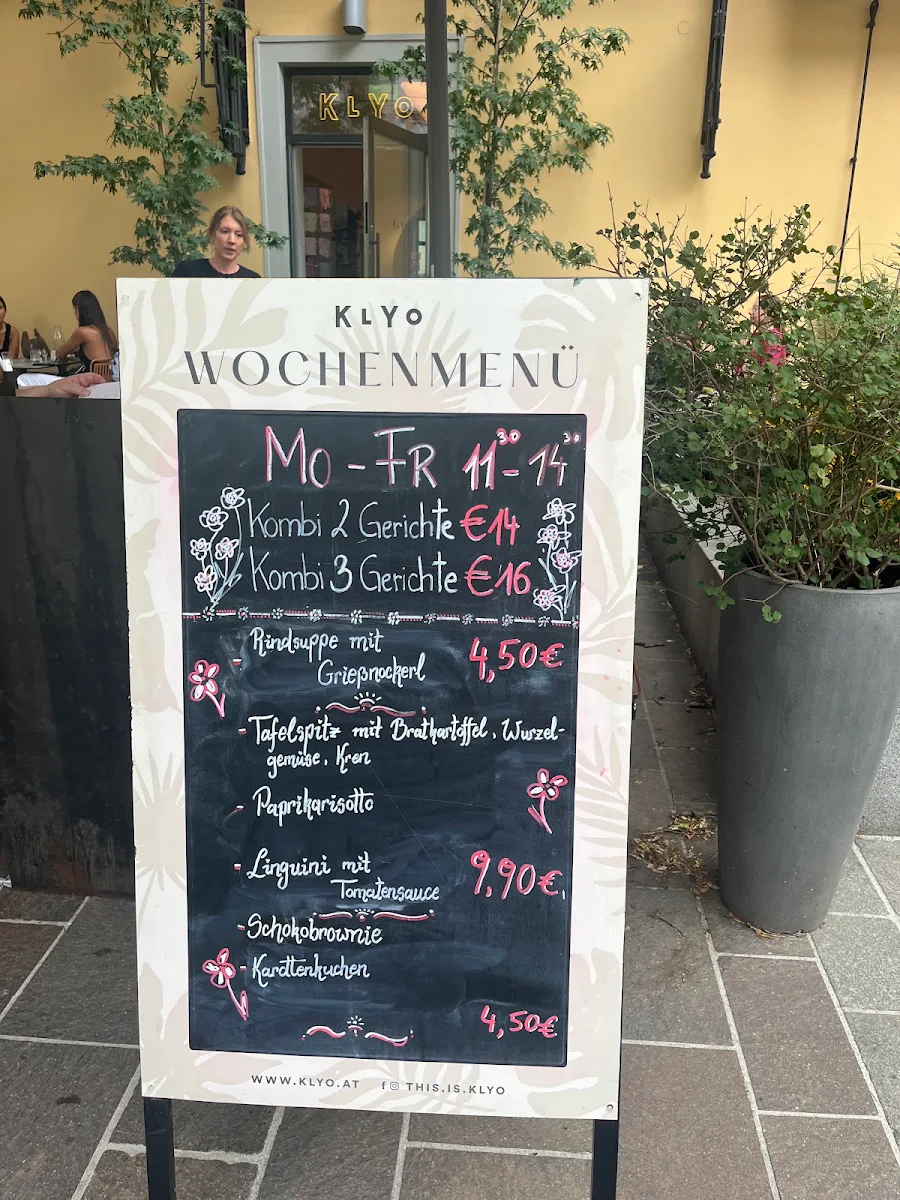 KLYO
KLYO
WOCHENMENÜ
Mo - FR 11³⁰ - 14³⁰
Kombi 2 Gerichte €14
Kombi 3 Gerichte €16
Rindsuppe mit
Grießnockerl 4,50€
- Tafelspitz mit Bratkartoffel, Wurzel-
gemüse, Kren
- Paprikarisotto
- Linguini mit
Tomatensauce 9,90€
- Schokobrownie
- Karottenkuchen
4,50€
WWW.KLYO.AT f THIS.IS.KLYO